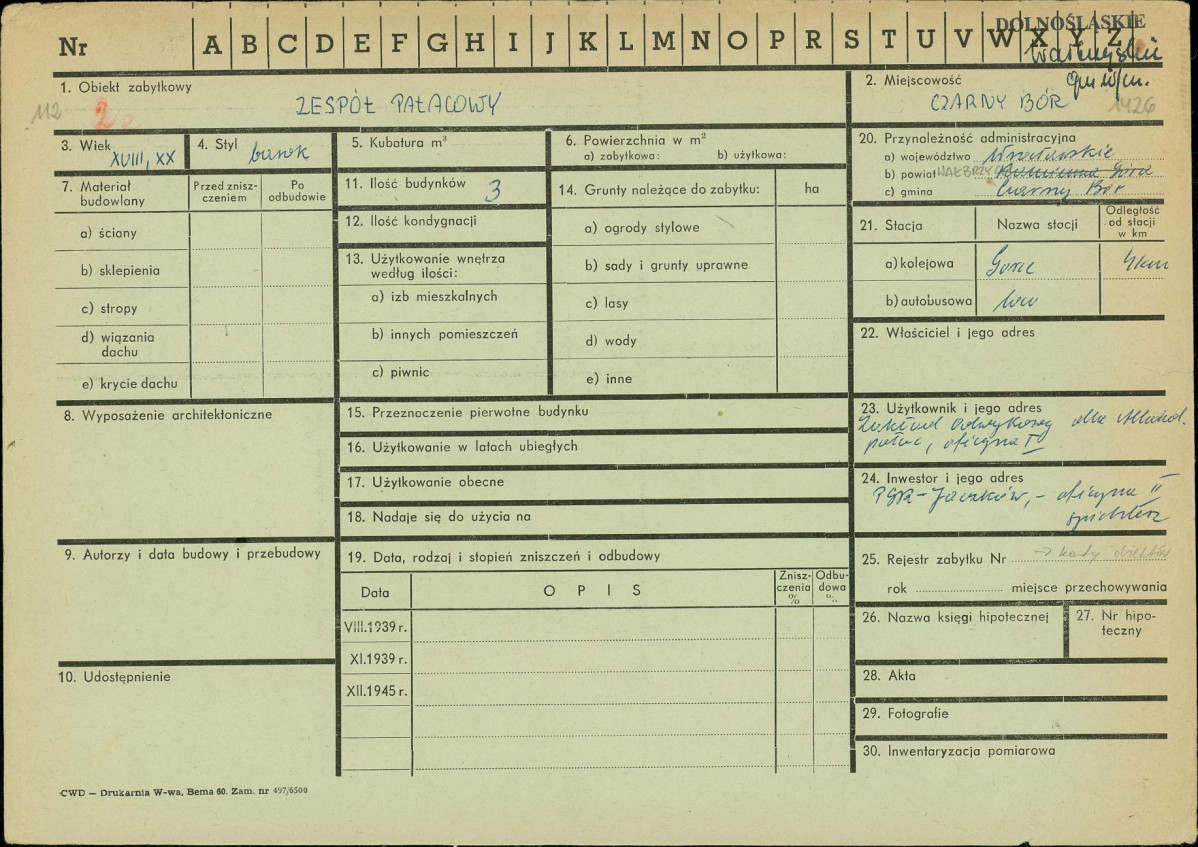 DOLNOŚLĄSKIE
Nr A B C D E F G H I J K L M N O P R S T U V W X Y Z
gm w/m.
1. Obiekt zabytkowy
112 2
ZESPÓŁ PAŁACOWY
2. Miejscowość
CZARNY BÓR 1426
3. Wiek XVIII, XX
4. Styl barok
5. Kubatura m³
6. Powierzchnia w m²
a) zabytkowa: b) użytkowa:
7. Materiał budowlany
Przed znisz-
czeniem
Po
odbudowie
a) ściany
b) sklepienia
c) stropy
d) wiązania
dachu
e) krycie dachu
8. Wyposażenie architektoniczne
9. Autorzy i data budowy i przebudowy
10. Udostępnienie
11. Ilość budynków 3
12. Ilość kondygnacji
13. Użytkowanie wnętrza
według ilości:
a) izb mieszkalnych
b) innych pomieszczeń
c) piwnic
14. Grunty należące do zabytku: ha
a) ogrody stylowe
b) sady i grunty uprawne
c) lasy
d) wody
e) inne
15. Przeznaczenie pierwotne budynku
16. Użytkowanie w latach ubiegłych
17. Użytkowanie obecne
18. Nadaje się do użycia na
19. Data, rodzaj i stopień zniszczeń i odbudowy
Data
OPIS
Znisz-
czenia
%
Odbu-
dowa
%
VIII.1939 r.
XI.1939 r.
XII.1945 r.
20. Przynależność administracyjna
a) województwo Wrocławskie
b) powiat WAŁBRZYCH Kamienna Góra
c) gmina Czarny Bór
21. Stacja
Nazwa stacji
Odległość
od stacji
w km
a) kolejowa 4km
b) autobusowa
22. Właściciel i jego adres
23. Użytkownik i jego adres
Zakład Odwykowy dla Alkohol.
pałac, oficyna I
24. Inwestor i jego adres
PGR - Jaczków, - oficyna II
spichlerz
25. Rejestr zabytku Nr → karty obiektów
rok miejsce przechowywania
26. Nazwa księgi hipotecznej
27. Nr hipo-
teczny
28. Akta
29. Fotografie
30. Inwentaryzacja pomiarowa
CWD — Drukarnia W-wa, Bema 60. Zam. nr 497/6500